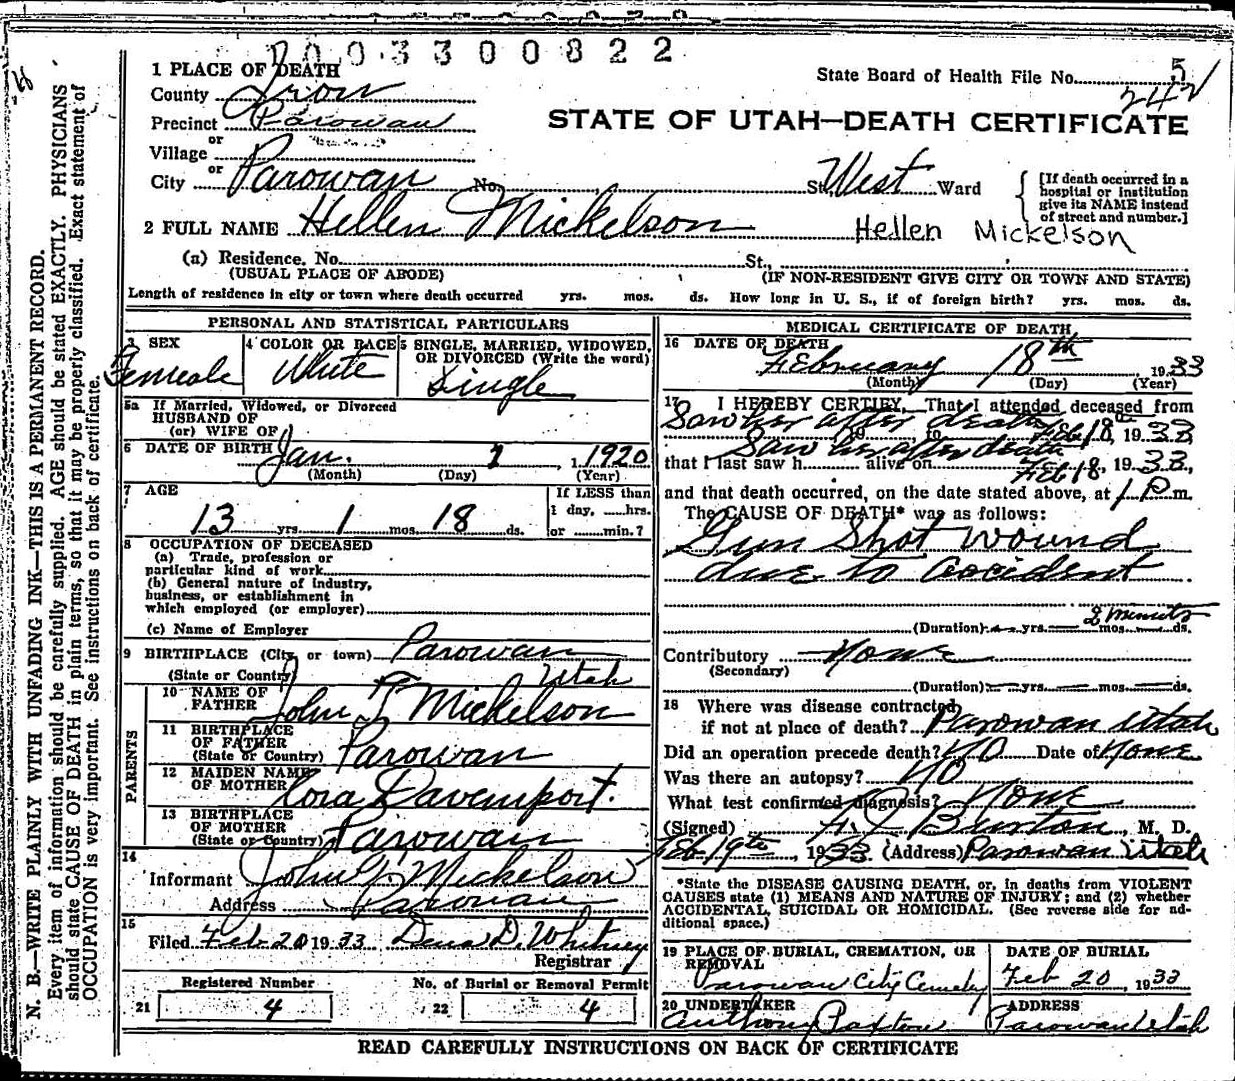 0 0 3 3 0 0 8 2 2
1 PLACE OF DEATH
State Board of Health File No. 5
242
County Iron
STATE OF UTAH—DEATH CERTIFICATE
Precinct Parowan
or
Village
or
City Parowan No. St., West Ward
[If death occurred in a hospital or institution give its NAME instead of street and number.]
2 FULL NAME Hellen Mickelson Hellen Mickelson
(a) Residence. No. St.,
(USUAL PLACE OF ABODE) (IF NON-RESIDENT GIVE CITY OR TOWN AND STATE)
Length of residence in city or town where death occurred yrs. mos. ds. How long in U. S., if of foreign birth? yrs. mos. ds.
PERSONAL AND STATISTICAL PARTICULARS
3 SEX
Femeale
4 COLOR OR RACE
White
5 SINGLE, MARRIED, WIDOWED, OR DIVORCED (Write the word)
Single
5a If Married, Widowed, or Divorced
HUSBAND OF
(or) WIFE OF
6 DATE OF BIRTH Jan. 1, 1920
(Month) (Day) (Year)
7 AGE
13 yrs. 1 mos. 18 ds.
If LESS than
1 day, hrs.
or min.?
8 OCCUPATION OF DECEASED
(a) Trade, profession or
particular kind of work
(b) General nature of industry,
business, or establishment in
which employed (or employer)
(c) Name of Employer
9 BIRTHPLACE (City, or town) Parowan
(State or Country) Utah
PARENTS
10 NAME OF FATHER John F Mickelson
11 BIRTHPLACE OF FATHER (State or Country) Parowan
12 MAIDEN NAME OF MOTHER Cora Davenport.
13 BIRTHPLACE OF MOTHER (State or Country) Parowan
14
Informant John F Mickelson
Address Parowan
15
Filed Feb 20 1933 D. Whitney
Registrar
Registered Number
21 4
No. of Burial or Removal Permit
22 4
MEDICAL CERTIFICATE OF DEATH
16 DATE OF DEATH
February 18th, 1933
(Month) (Day) (Year)
17 I HEREBY CERTIFY, That I attended deceased from
Saw her after death
19 to Feb 18, 1933
Saw her after death
that I last saw h alive on Feb 18, 1933,
and that death occurred, on the date stated above, at 1 P m.
The CAUSE OF DEATH* was as follows:
Gun Shot wound
due to accident
2 minuts
(Duration) yrs. mos. ds.
Contributory None
(Secondary)
(Duration) yrs. mos. ds.
18 Where was disease contracted
if not at place of death? Parowan Utah
Did an operation precede death? NO Date of None
Was there an autopsy? NO
What test confirmed diagnosis? None
(Signed) Burton, M. D.
Feb 19th, 1933 (Address) Parowan Utah
*State the DISEASE CAUSING DEATH, or, in deaths from VIOLENT
CAUSES state (1) MEANS AND NATURE OF INJURY; and (2) whether
ACCIDENTAL, SUICIDAL OR HOMICIDAL. (See reverse side for ad-
ditional space.)
19 PLACE OF BURIAL, CREMATION, OR REMOVAL
Parowan City Cemetery
DATE OF BURIAL
Feb 20, 1933
20 UNDERTAKER
Anthony Paxton
ADDRESS
Parowan Utah
READ CAREFULLY INSTRUCTIONS ON BACK OF CERTIFICATE
N. B.—WRITE PLAINLY WITH UNFADING INK—THIS IS A PERMANENT RECORD.
Every item of information should be carefully supplied. AGE should be stated EXACTLY. PHYSICIANS
should state CAUSE OF DEATH in plain terms, so that it may be properly classified. Exact statement of
OCCUPATION is very important. See instructions on back of certificate.